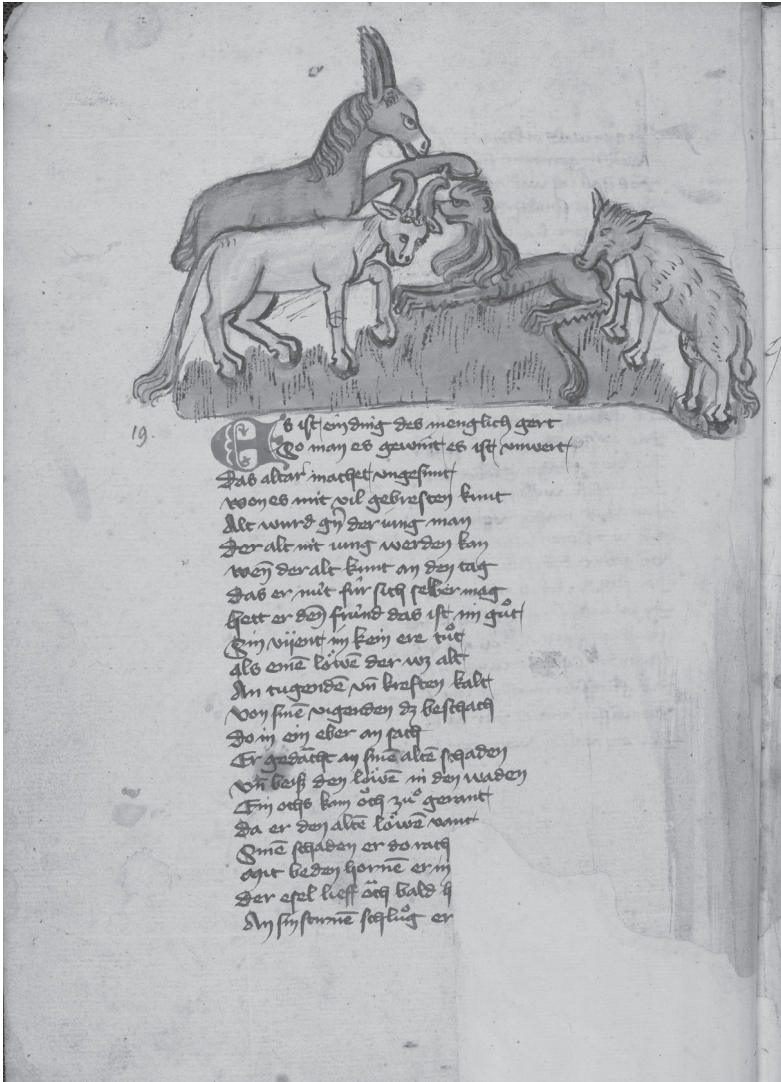 19.
Es ist ein ding des menglich gert
So man es gewint es ist unwert
Das altar machet ungesunt
won es mit vil gebresten kunt
Alt wurd gn̄ der iung man
Der alt nit iung werden kan
wen̄ der alt kunt an den tag
Das er nüt für sich selber mag
hett er den̄ fründ das ist im gůt
Sin vijent im kein ere tůt
Als einē löwē der wz alt
An tugendē vn̄ kreften kalt
Von sinē vigenden dz beschach
Do in ein eber an sach
Er gedācht an sinē altē schaden
vn̄ beiß den löwē in den waden
Ein ochs kam öch zů gerant
da er den altē löwē vant
Sinē schaden er do rach
Mit beden hornē er in
der esel lieff öch bald h
An sin stirnē schlůg er